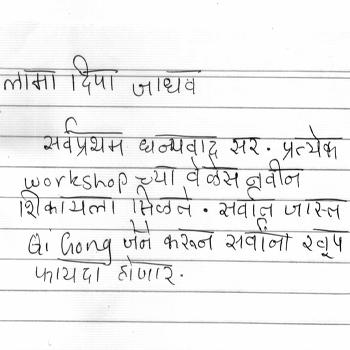 लामा दिपा जाधव
सर्वप्रथम धन्यवाद सर. प्रत्येक
workshop च्या वेळेस नवीन
शिकायला मिळते. सर्वात जास्त
Qi Gong जेने करून सर्वांना खूप
फायदा होणार.